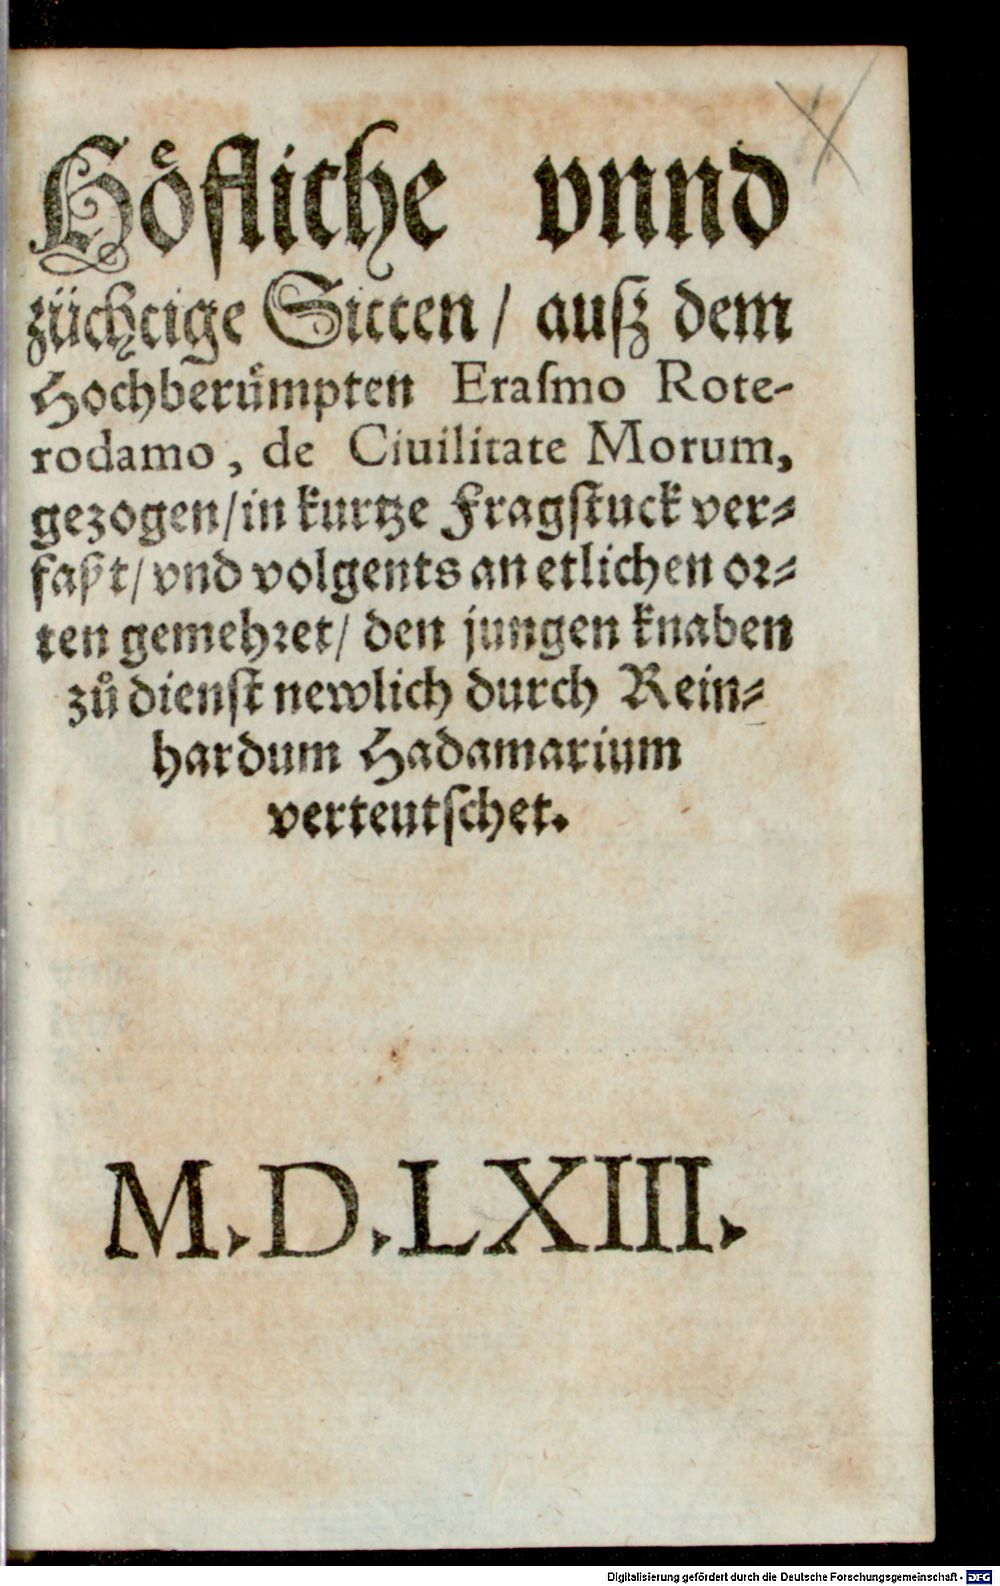 Hoͤfliche vnnd
züchtige Sitten / ausz dem
Hochberuͤmpten Eraſmo Rote-
rodamo, de Ciuilitate Morum,
gezogen/in kurtze Fragſtuck ver⸗
faßt/ vnd volgents an etlichen or⸗
ten gemehret/ den jungen knaben
zuͦ dienſt newlich durch Rein⸗
hardum Hadamarium
verteutſchet.
M.D.LXIII.
Digitalisierung gefördert durch die Deutsche Forschungsgemeinschaft - DFG